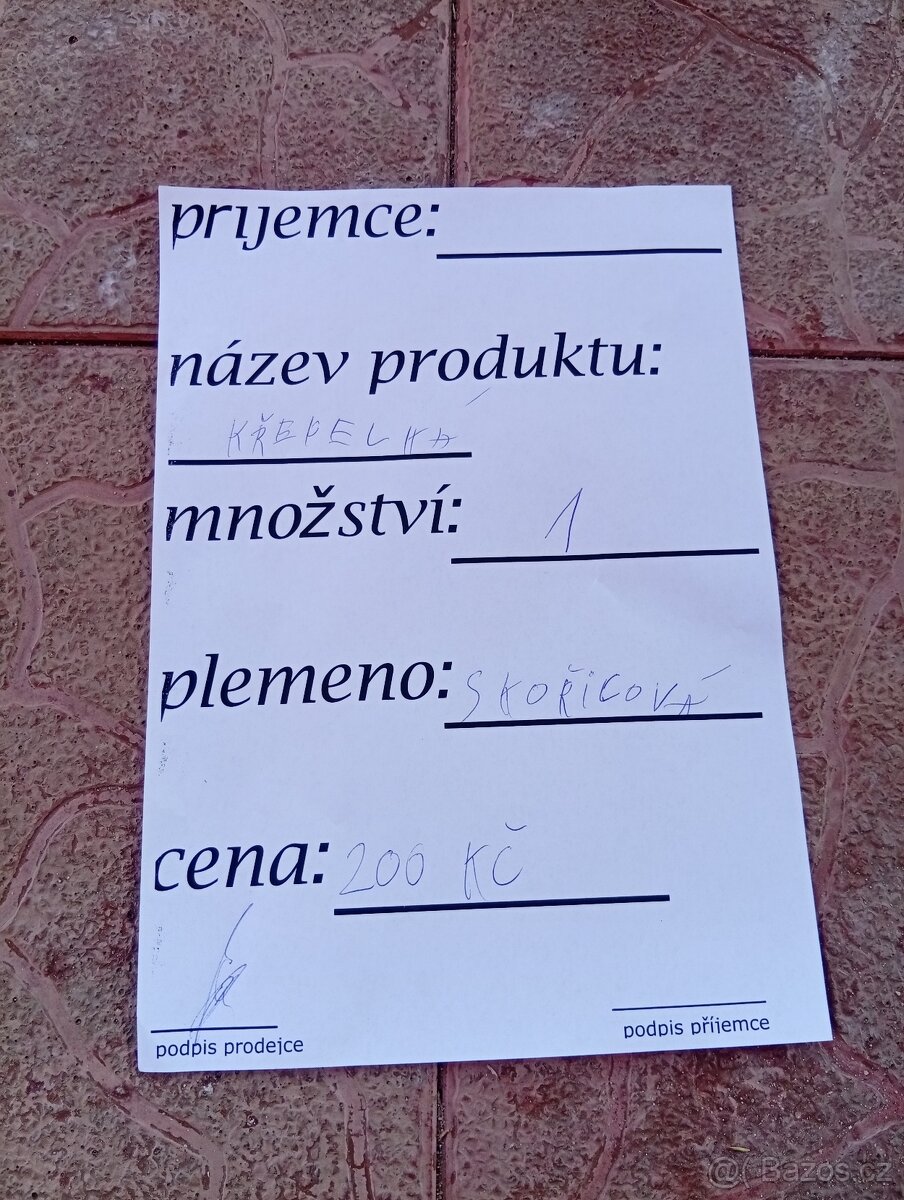 příjemce:
název produktu:
KŘEPELKA
množství: 1
plemeno: SKOŘICOVÁ
cena: 200 KČ
podpis prodejce
podpis příjemce
@ Bazos.cz